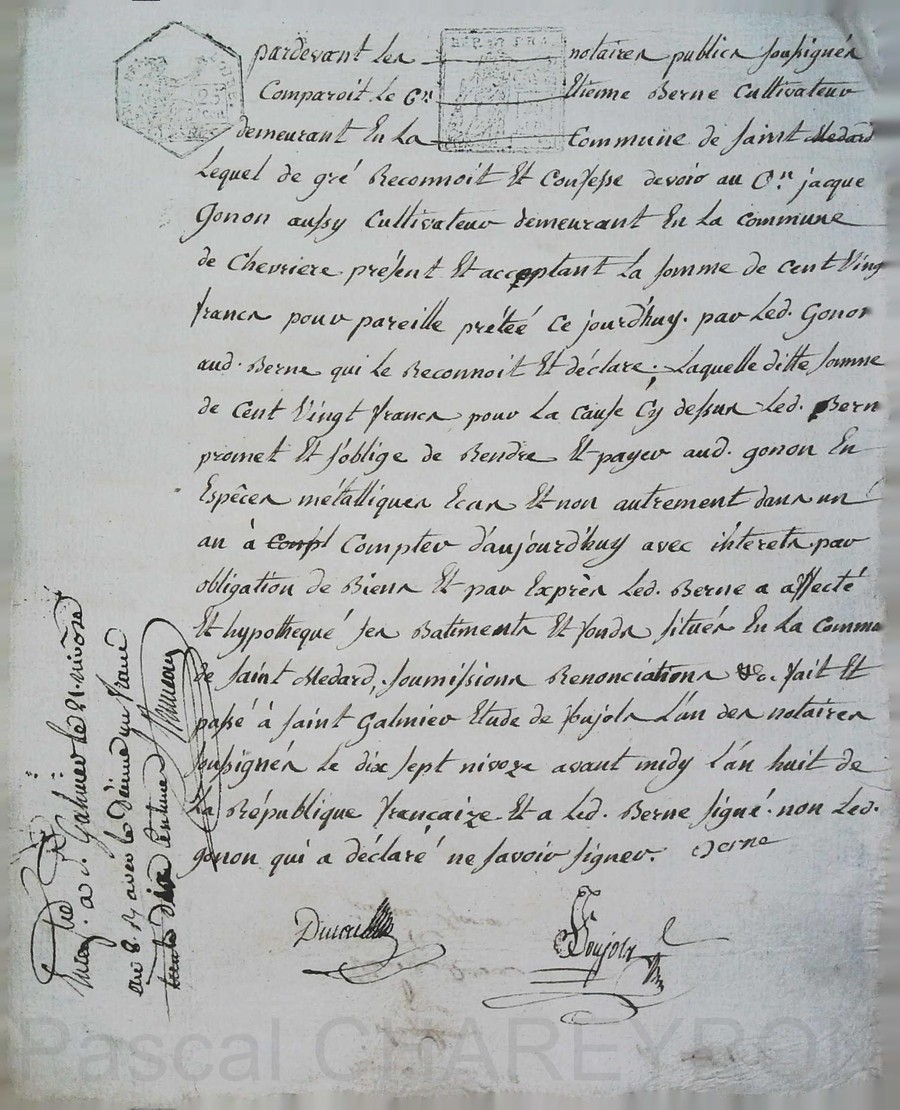 pardevant les notaires publics soussignés
Comparoit le C.en Etienne Berne Cultivateur
demeurant En La Commune de saint Medard
Lequel de gré Reconnoit Et Confesse devoir au C.en jacque
Gonon aussy Cultivateur demeurant En La commune
de Chevriere présent Et acceptant La somme de cent Ving
francs pour pareille prétéé Ce jourd'huy. par Led. Gonon
aud. Berne qui le Reconnoit Et déclare. Laquelle ditte somme
de Cent Vingt francs pour La Cause Cy dessus Led. Berne
promet Et s'oblige de Rendre Et payer aud. gonon En
Espêces métalliques Ecus Et non autrement dans un
an à Compter d'aujourd'huy avec intérets par
obligation de Biens Et par Exprès Led. Berne a affecté
Et hypothequé ses Batiments Et fonds situés En La Commu
de saint Medard, soumissions Renonciations &c. fait Et
passé à saint Galmier Etude de Poujols L'un des notaires
soussignés Le dix sept nivoze avant midy L'an huit de
La République francaize Et a Led. Berne signé. non Led.
gonon qui a déclaré ne savoir signer. Berne
Poujols
à S. Galmier le 21. nivose
an 8. avec le dixième un franc
dix centimes
Pascal CHAREYRON